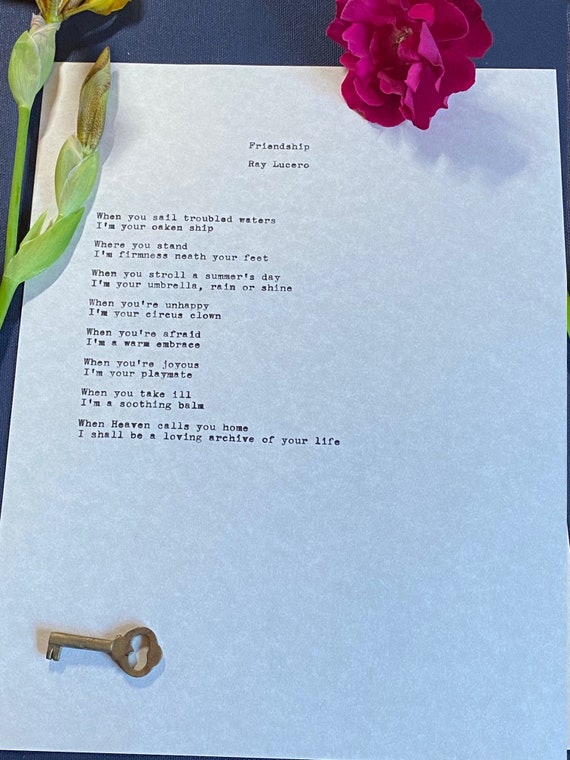 Friendship
Ray Lucero
When you sail troubled waters
I'm your oaken ship
Where you stand
I'm firmness neath your feet
When you stroll a summer's day
I'm your umbrella, rain or shine
When you're unhappy
I'm your circus clown
When you're afraid
I'm a warm embrace
When you're joyous
I'm your playmate
When you take ill
I'm a soothing balm
When Heaven calls you home
I shall be a loving archive of your life